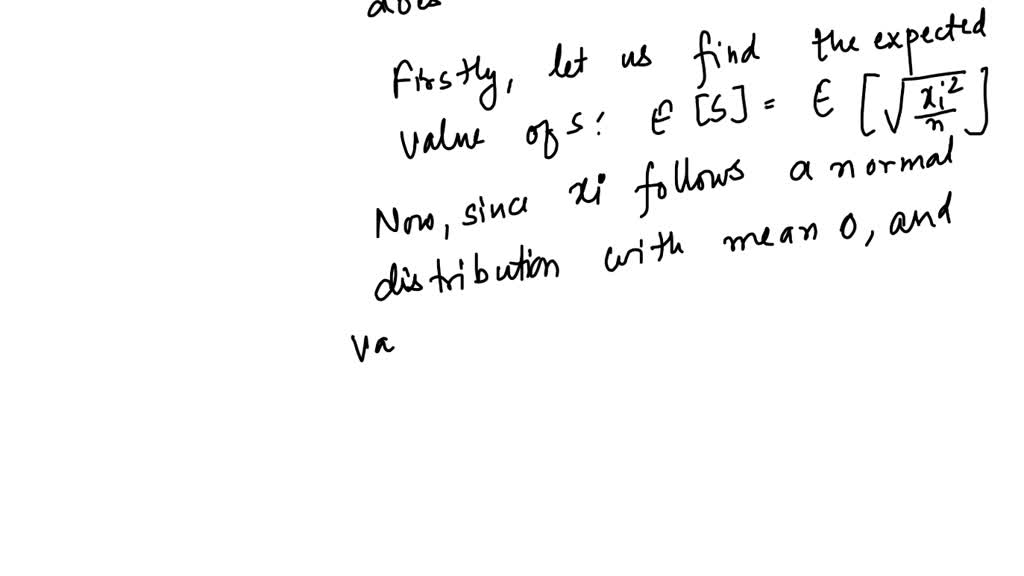 does
Firstly, let us find the expected
value of s: E [S] = E [√(xi²/n)]
Now, since xi follows a normal
distribution with mean 0, and
va